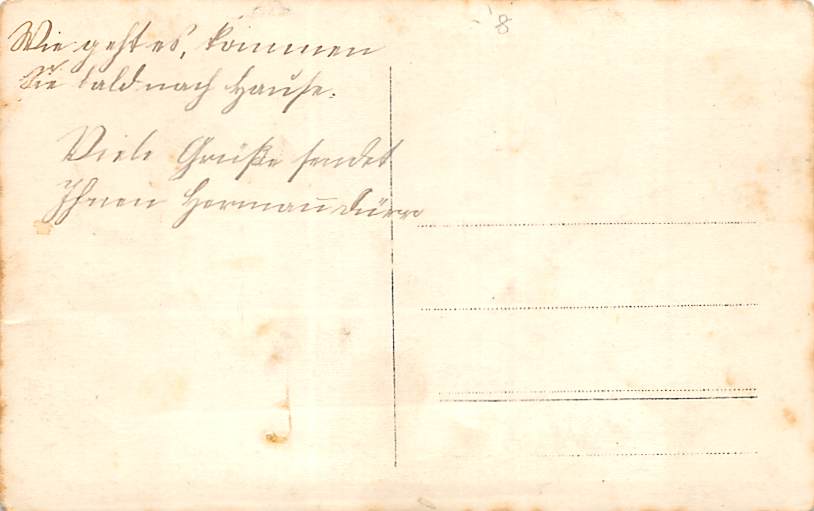 8
Wie geht es, kommen
Sie bald nach Hause.
Viele Grüße sendet
Ihnen Hermann Dürr